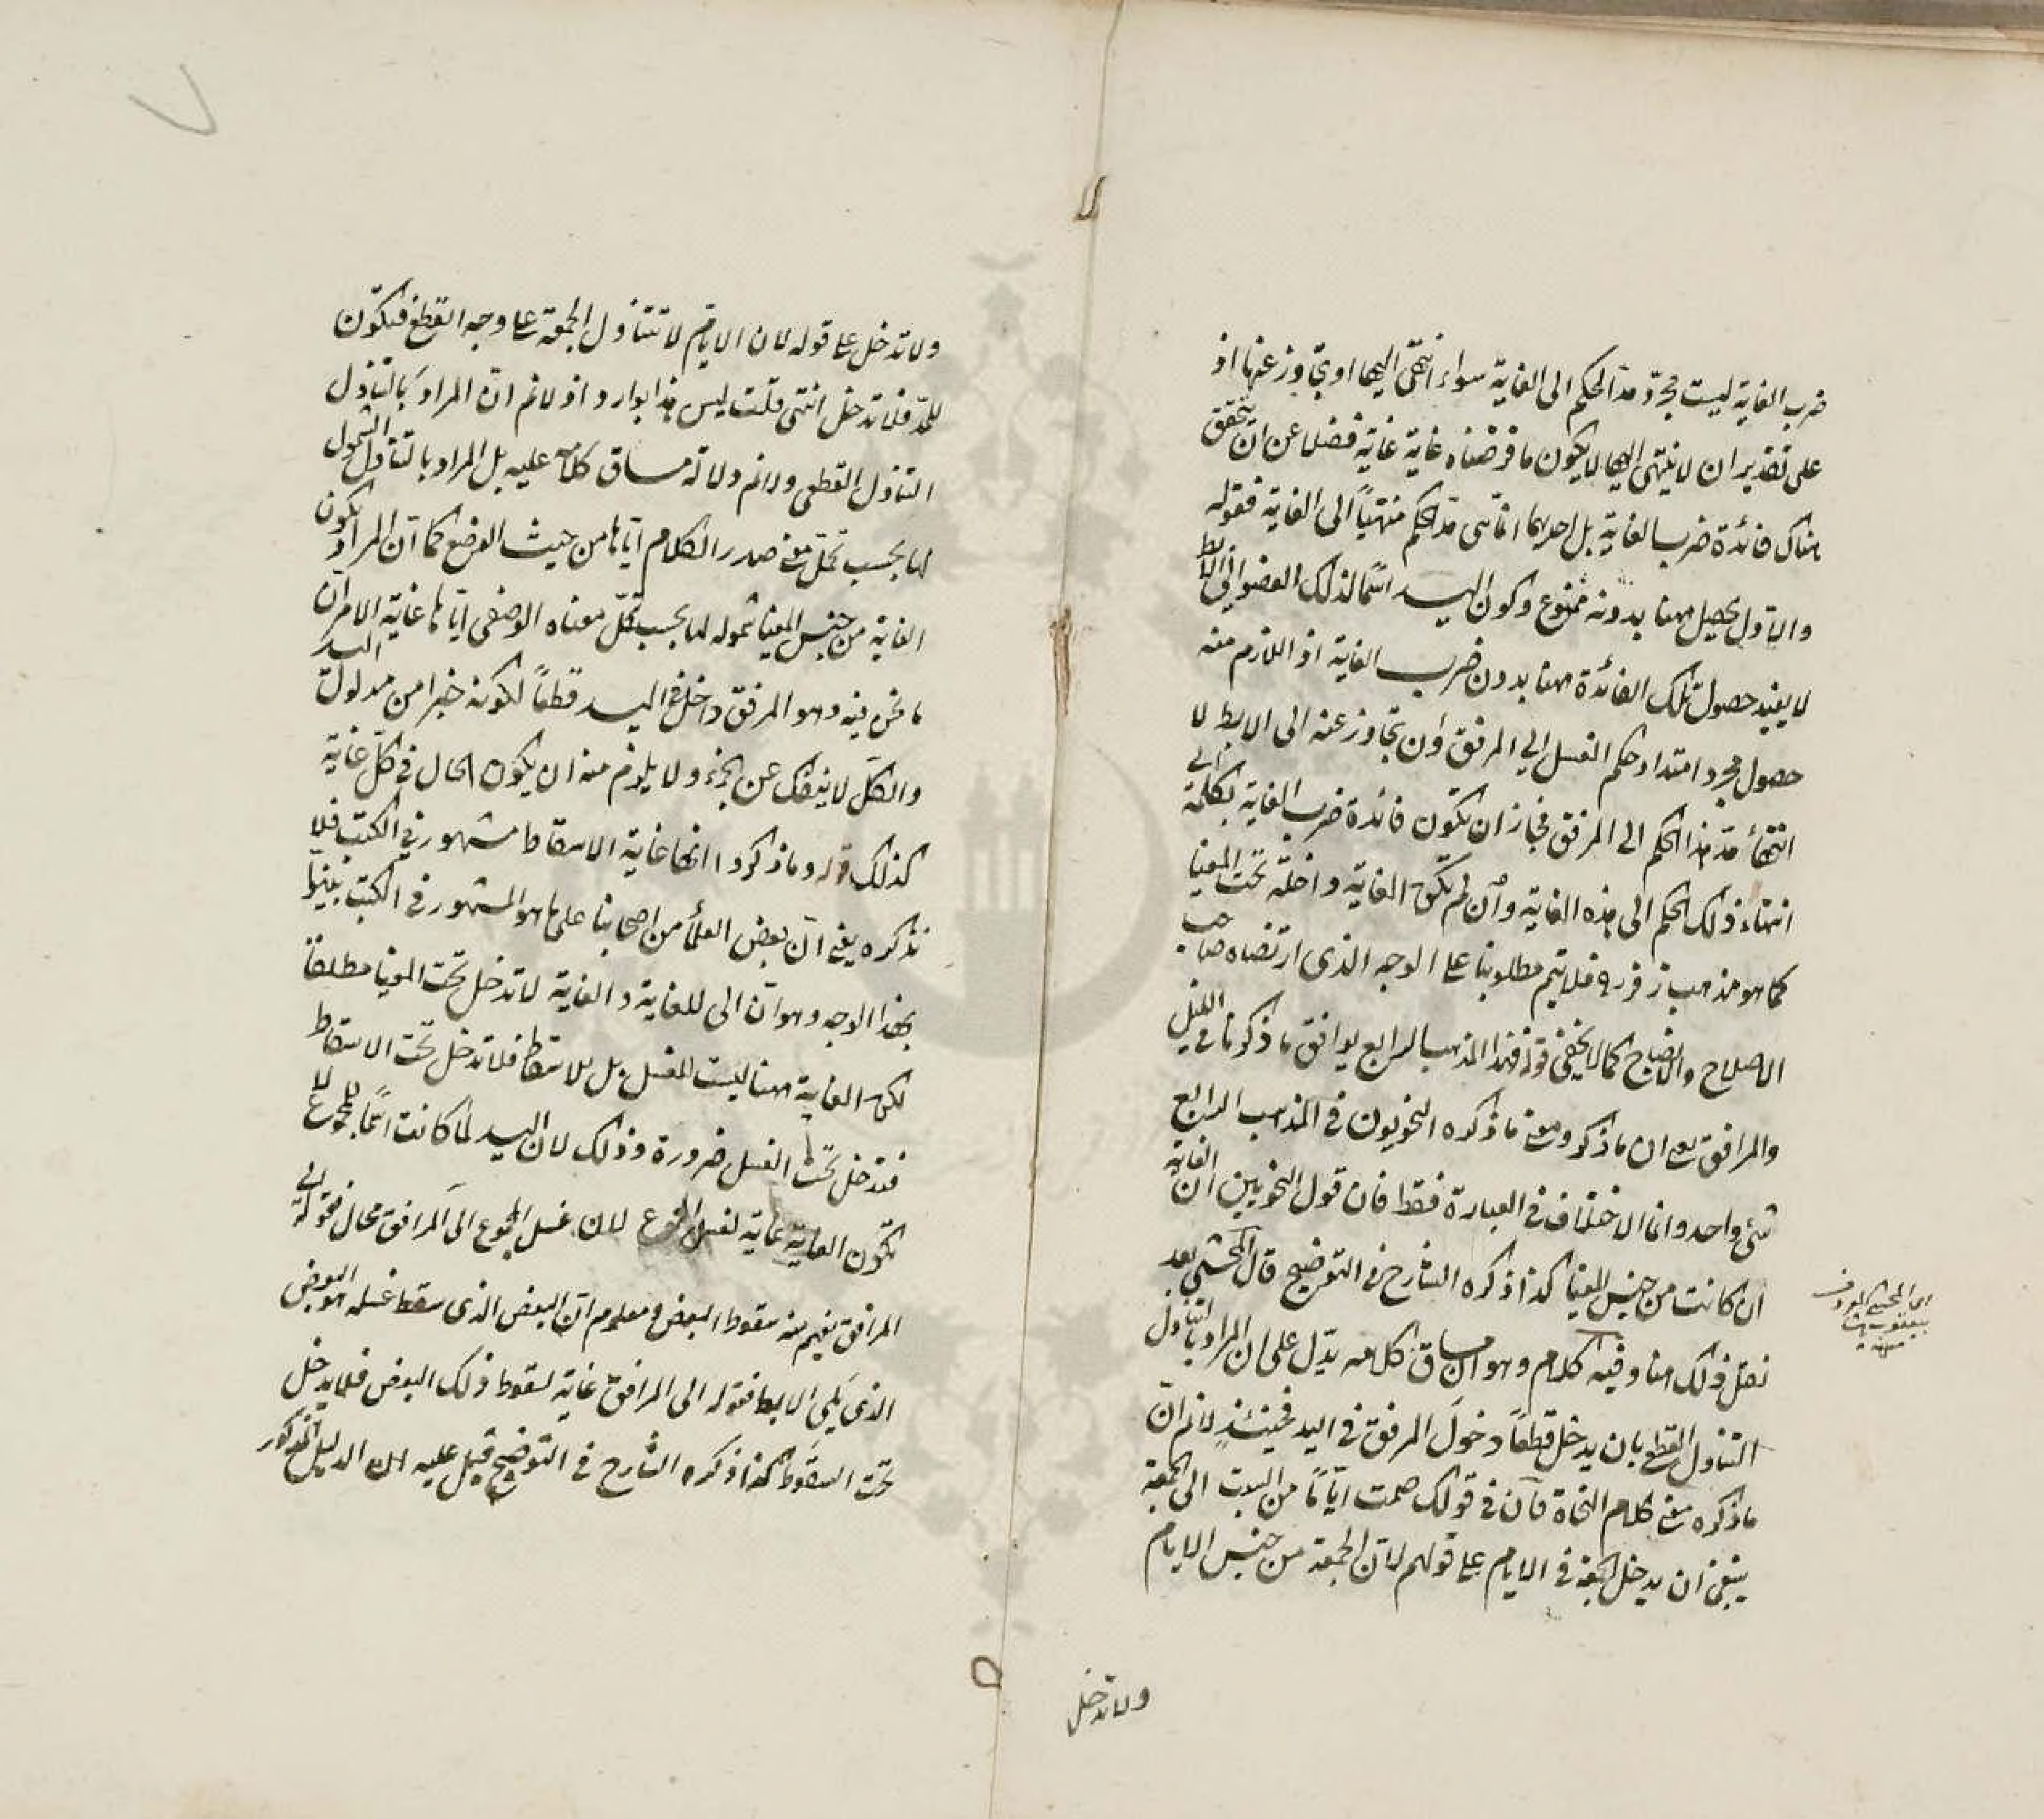 ضرب الغاية ليست مجرد مد الحكم الى الغاية سواء انتهى اليها او يتجاوز عنها اذ
على تقدير ان لا ينتهى اليها لا يكون ما فرضناه غاية غاية فضلا عن ان يتحقق
هناك فائدة ضرب الغاية بل احديهما انما هى مد الحكم منتهيا الى الغاية فقوله
والاول يحصل ههنا بدونه ممنوع وكون اليد اسما لذلك العضو الى الابط
لا يفيد حصول تلك الفائدة ههنا بدون ضرب الغاية اذ اللازم منه
حصول مجرد امتداد حكم الغسل الى المرفق وان تجاوز عنه الى الابط لا
انتهاء مد هذا الحكم الى المرفق فجاز ان تكون فائدة ضرب الغاية بكلمة الى
انتهاء ذلك الحكم الى هذه الغاية وان لم تكن الغاية داخلة تحت المغيا
كما هو مذهب زفر فلا يتم مطلوبنا على الوجه الذى ارتضاه صاحب
الاصلاح والايضاح كما لا يخفى قوله فهذا المذهب الرابع يوافق ما ذكرنا فى الليل
والمرافق يعنى ان ما ذكروه ومعنى ما ذكره النحويون فى المذهب الرابع
شئ واحد وانما الاختلاف فى العبارة فقط فان قول النحويين ان الغاية
ان كانت من جنس المغيا كذا ذكره الشارح فى التوضيح قال المحشى بعد
نقل ذلك هنا وفيه كلام وهو ان مساق كلامه يدل على ان المراد بالتناول
التناول القطعى بان يدخل قطعا دخول المرفق فى اليد فحينئذ لا نم ان
ما ذكره معنى كلام النحاة فان فى قولك صمت اياما من السبت الى الجمعة
ينبغى ان يدخل الجمعة فى الايام على قولهم لان الجمعة من جنس الايام
اى المحشى المعروف
بيعقوب پاشا
منه
ولا تدخل
ولا تدخل على قوله لان الايام لا تتناول الجمعة على وجه القطع فتكون
للمد فلا تدخل انتهى قلت ليس هذا بوارد اذ لا نم ان المراد بالتناول
التناول القطعى ولا نم دلالة مساق كلامه عليه بل المراد بالتناول الشمول
لها بحسب تحمل معنى صدر الكلام اياها من حيث الوضع كما ان المراد بكون
الغاية من جنس المغيا شموله لها بحسب تحمل معناه الوضعى اياها غاية الامر ان
ما نحن فيه وهو المرفق داخل فى اليد قطعا لكونه جزأ من مدلول اليد
والكل لا ينفك عن الجزء ولا يلزم منه ان يكون الحال فى كل غاية
كذلك قوله وما ذكروا انها غاية الاسقاط مشهور فى الكتب فلا
نذكره يعنى ان بعض العلماء من اصحابنا على ما هو المشهور فى الكتب بينوا
بهذا الوجه وهو ان الى للغاية والغاية لا تدخل تحت المغيا مطلقا
لكن الغاية ههنا ليست للغسل بل للاسقاط فلا تدخل تحت الاسقاط
فتدخل تحت الغسل ضرورة وذلك لان اليد لما كانت اسما للمجموع لا
تكون الغاية غاية لغسل المجموع لان غسل المجموع الى المرافق محال فقوله الى
المرافق يفهم منه سقوط البعض ومعلوم ان البعض الذى سقط غسله هو البعض
الذى يلى الابط فقوله الى المرافق غاية لسقوط ذلك البعض فلا يدخل
تحت السقوط كذا ذكره الشارح فى التوضيح قيل عليه ان الدليل المذكور